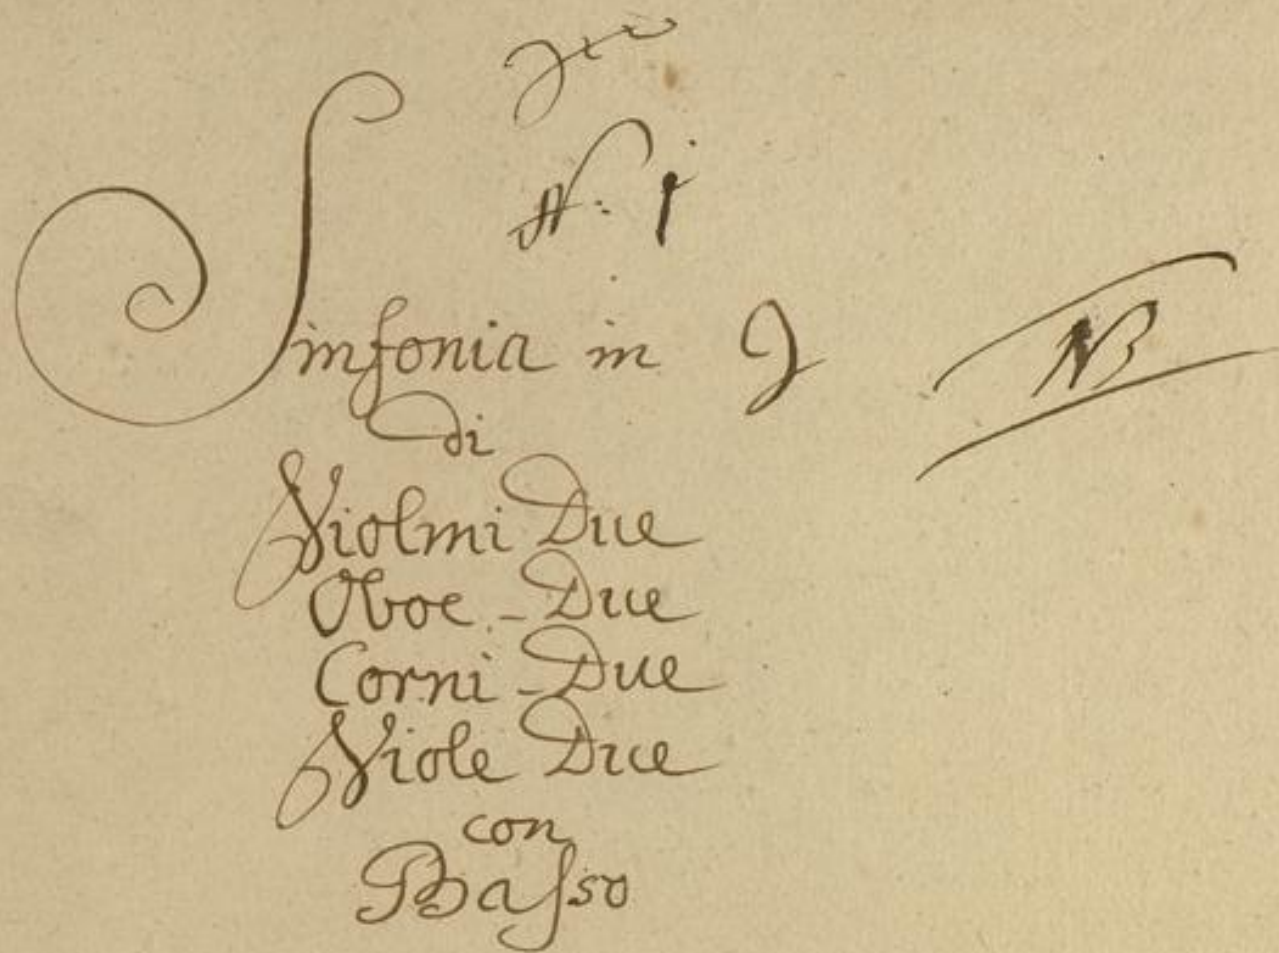 N: 1
Sinfonia in G NB
di
Violini Due
Oboe - Due
Corni - Due
Viole Due
con
Baſso